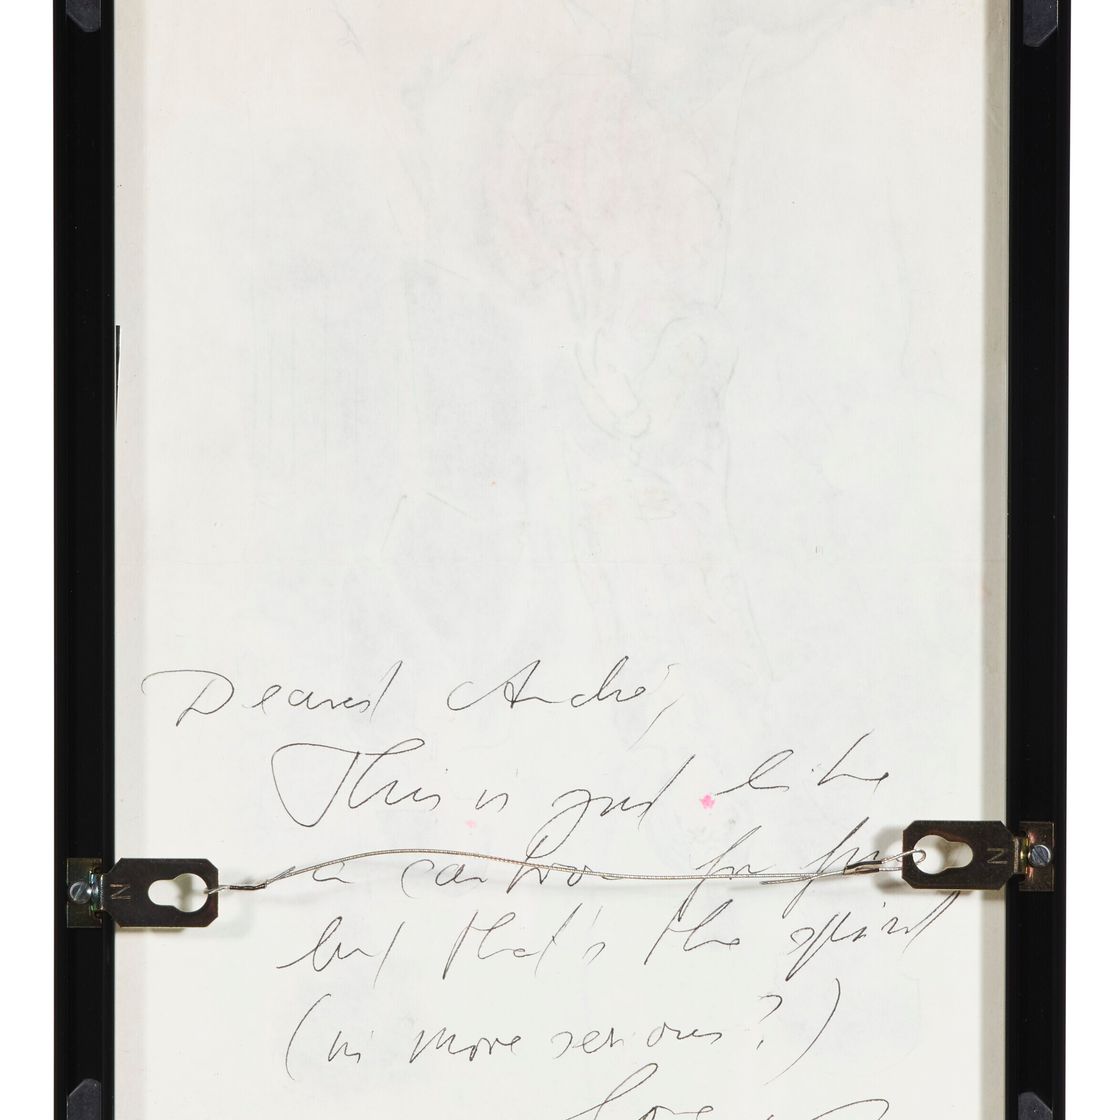 Dearest André,
This is just like
a cartoon for fun
but that's the spirit
(in more serious?)
Love
N
N